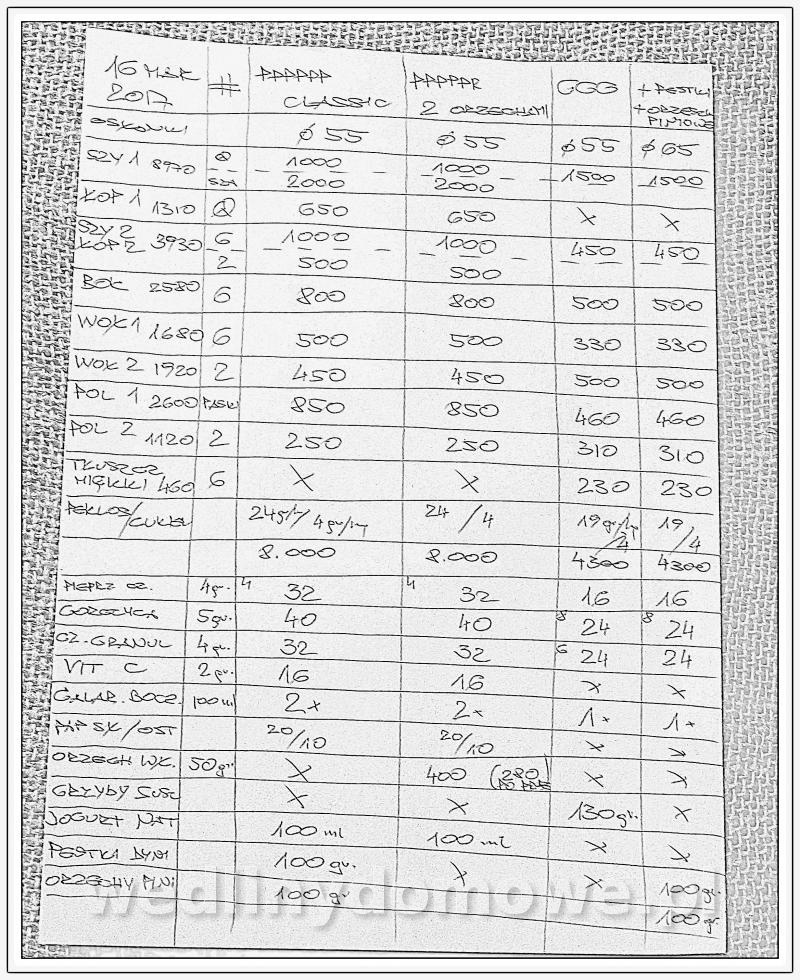 16 MAR 2017 # PPPPPP CLASSIC PPPPPR 2 ORZECHAMI GGG + PESTKI + ORZECH PINIOWE
OSŁONKI ø 55 ø 55 ø 55 ø 65
SZY 1 8970 1000 1000 1500 1500
SZA 2000 2000
KOP 1 1310 650 650 X X
SZY 2 KOP 2 3930 6 1000 1000 450 450
2 500 500
BOK 2580 6 800 800 500 500
WOŁ 1 1680 6 500 500 330 330
WOŁ 2 1920 2 450 450 500 500
POL 1 2600 PASKI 850 850 460 460
POL 2 1120 2 250 250 310 310
TŁUSZCZ MIĘKKI 460 6 X X 230 230
PEKLOS/CUKIER 24gr/ 4gr/ 24/4 19gr/ 4 19/4
8.000 8.000 4300 4300
PIEPRZ CZ. 4gr. 4 32 4 32 16 16
GORCZYCA 5gr. 40 40 8 24 8 24
CZ. GRANUL 4gr. 32 32 6 24 24
VIT C 2gr. 16 16 X X
GALAR. BOCZ. 100ml 2x 2x 1x 1x
PAP SŁ/OST 20/10 20/10 X X
ORZECH WŁ. 50gr. X 400 (280) X X
GRZYBY SUSZ X X 130gr. X
JOGURT NAT 100 ml 100 ml X X
PESTKI DYNI 100 gr. X X 100 gr.
ORZECHY PINI 100 gr 100 gr.
wedlinydomowe.pl